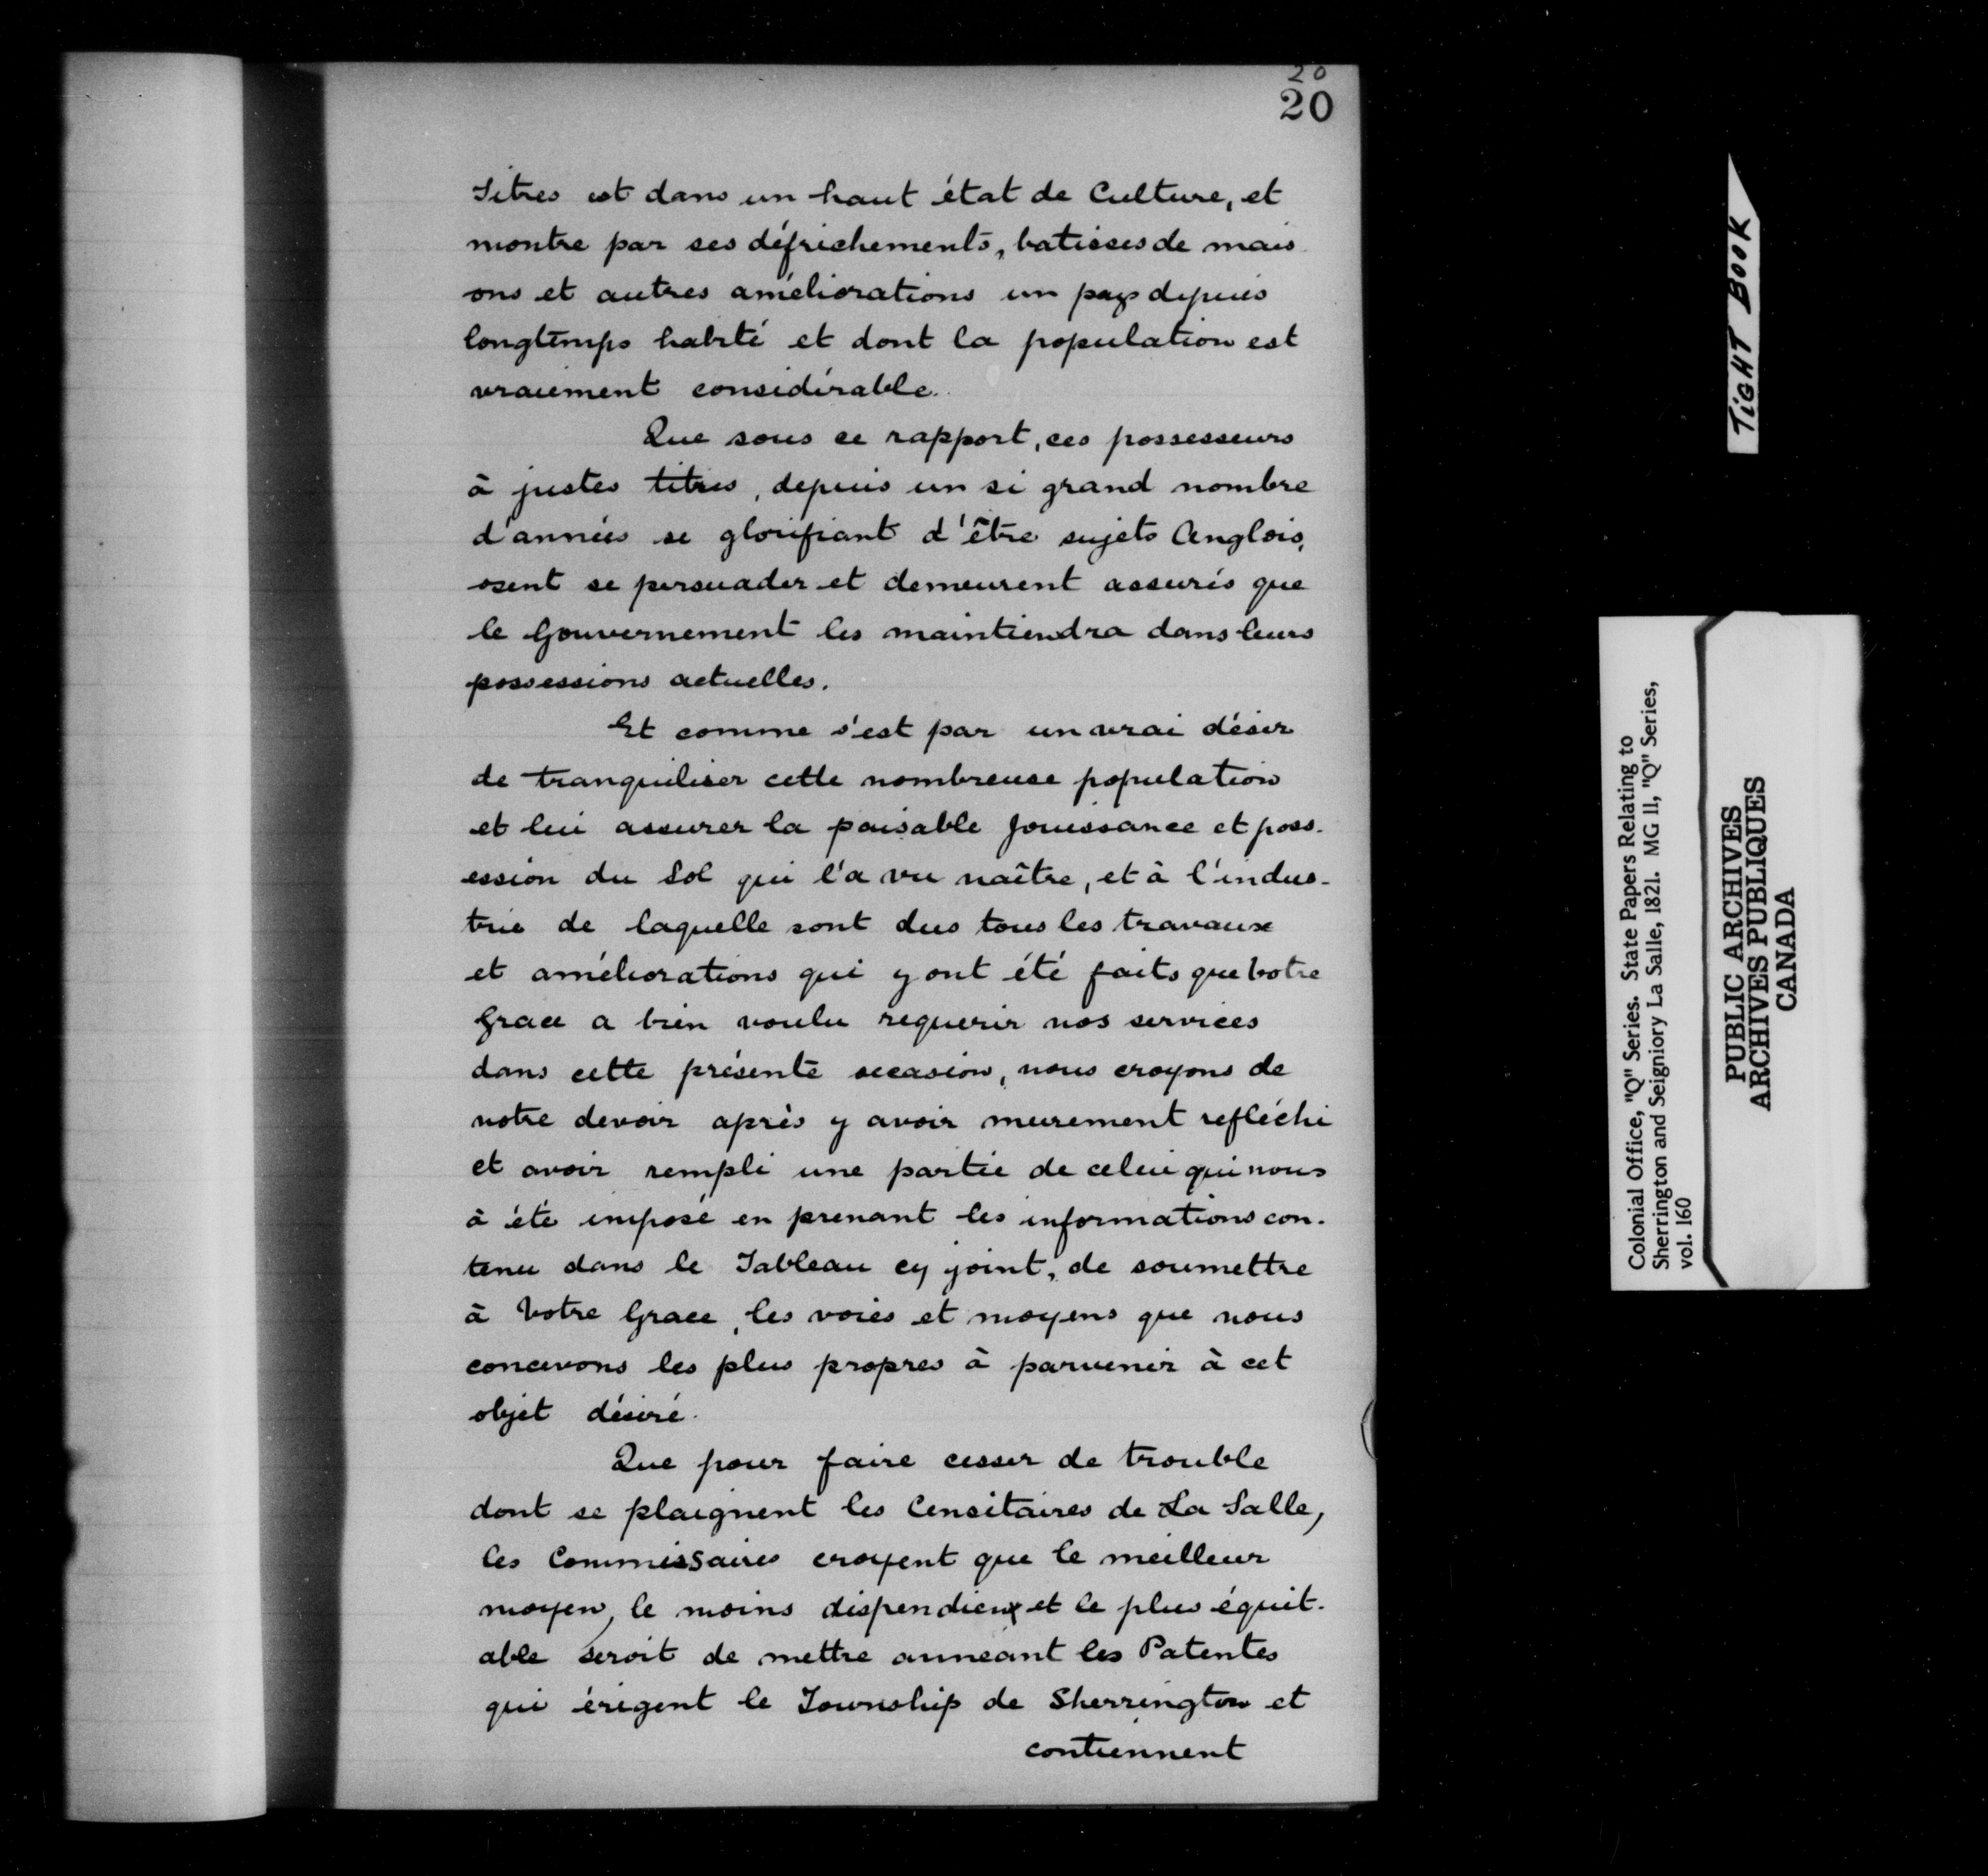 20
20
Titres est dans un haut état de Culture, et
montre par ses défrichements, batisses de mais
ons et autres améliorations un pays depuis
longtemps habité et dont la population est
vraiement considérable.
Que sous ce rapport, ces possesseurs
à justes titres, depuis un si grand nombre
d'années se glorifiant d'être sujets Anglois,
osent se persuader et demeurent assurés que
le Gouvernement les maintiendra dans leurs
possessions actuelles.
Et comme s'est par un vrai désir
de tranquiliser cette nombreuse population
et lui assurer la paisable Jouissance et poss-
ession du Sol qui l'a vu naître, et à l'indus-
trie de laquelle sont dus tous les travaux
et améliorations qui y ont été faits que Votre
Grace a bien voulu requerir nos services
dans cette présente occasion, nous croyons de
notre devoir après y avoir murement refléchi
et avoir rempli une partie de celui qui nous
à été imposé en prenant les informations con-
tenu dans le Tableau cy joint, de soumettre
à Votre Grace, les voies et moyens que nous
concevons les plus propres à parvenir à cet
objet désiré.
Que pour faire cesser de trouble
dont se plaignent les Censitaires de La Salle,
les Commissaires croyent que le meilleur
moyen, le moins dispendieux et le plus équit-
able seroit de mettre anneant les Patentes
qui érigent le Township de Sherrington et
contiennent
TIGHT BOOK
Colonial Office, "Q" Series. State Papers Relating to
Sherrington and Seigniory La Salle, 1821. MG 11, "Q" Series,
vol. 160
PUBLIC ARCHIVES
ARCHIVES PUBLIQUES
CANADA